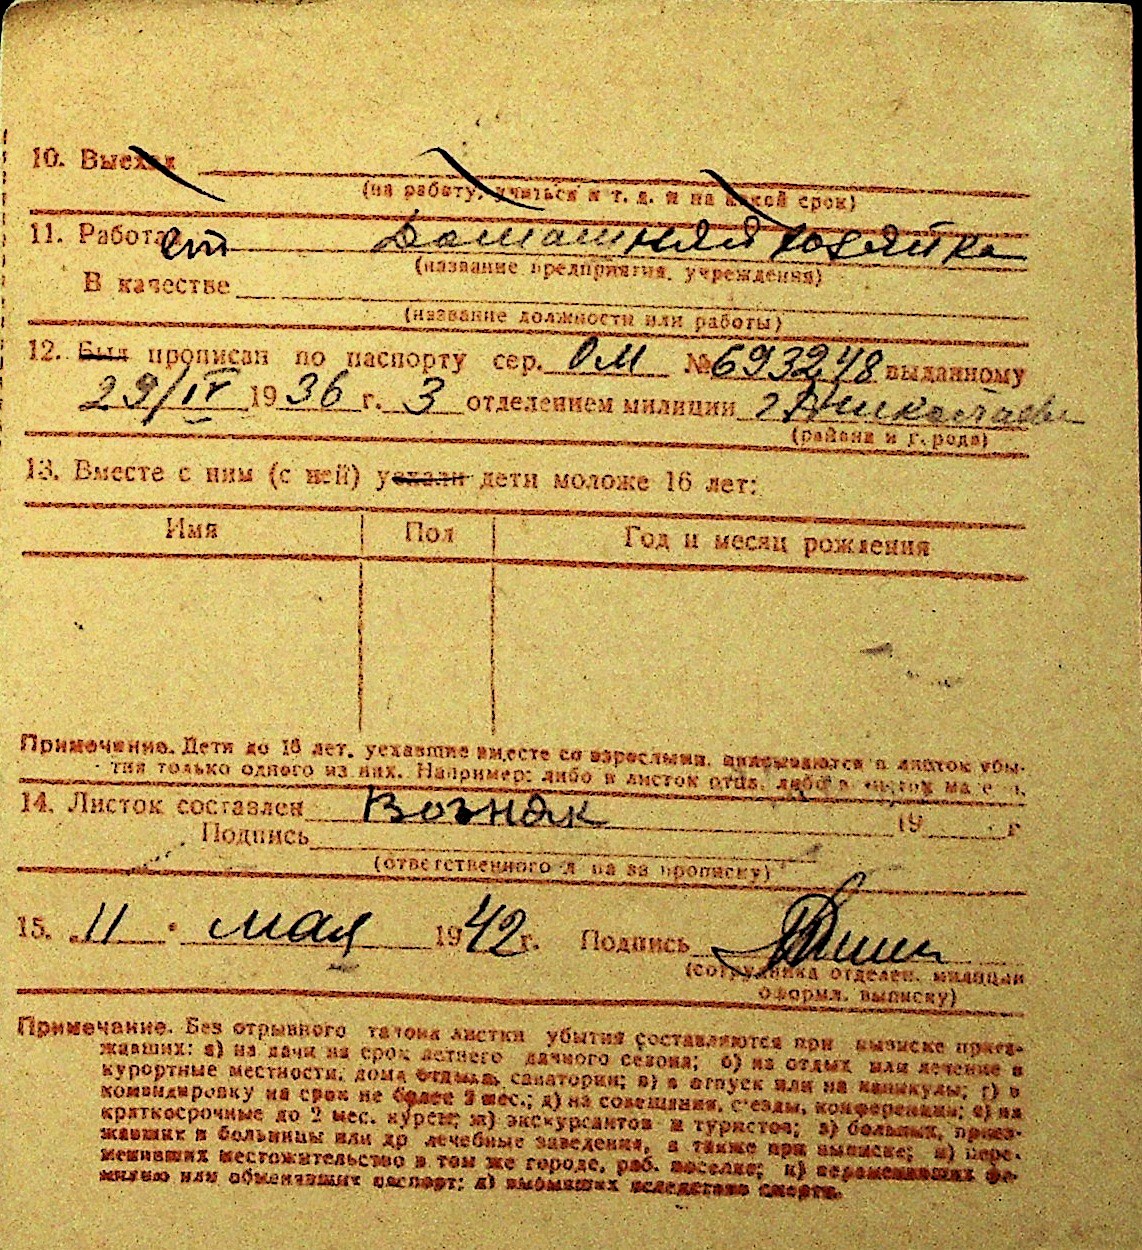 10. Выехал
(на работу, учиться и т. д. и на какой срок)
11. Работает Домашняя хозяйка
(название предприятия, учреждения)
В качестве
(название должности или работы)
12. Был прописан по паспорту сер. ОМ № 693248 выданному
29/IV 1936 г. 3 отделением милиции г. Николаева
(района и города)
13. Вместе с ним (с ней) уехали дети моложе 16 лет:
Имя Пол Год и месяц рождения
Примечание. Дети до 16 лет, уехавшие вместе со взрослыми, вписываются в листок убы-
тия только одного из них. Например: либо в листок отца, либо в листок матери.
14. Листок составлен Возняк 19 г
Подпись
(ответственного лица за прописку)
15. „11 " мая 1942 г. Подпись
(сотрудника отделен. милиции
оформл. выписку)
Примечание. Без отрывного талона листки убытия составляются при выписке приез-
жавших: а) на дачи на срок летнего дачного сезона; б) на отдых или лечение в
курортные местности, дома отдыха, санатории; в) в отпуск или на каникулы; г) в
командировку на срок не более 2 мес.; д) на совещания, съезды, конференции; е) на
краткосрочные до 2 мес. курсы; ж) экскурсантов и туристов; з) больных, приез-
жавших в больницы или др лечебные заведения, а также при выписке; и) пере-
менивших местожительство в том же городе, раб. поселке; к) переменивших фа-
милию или обменявших паспорт; л) выбывших вследствие смерти.